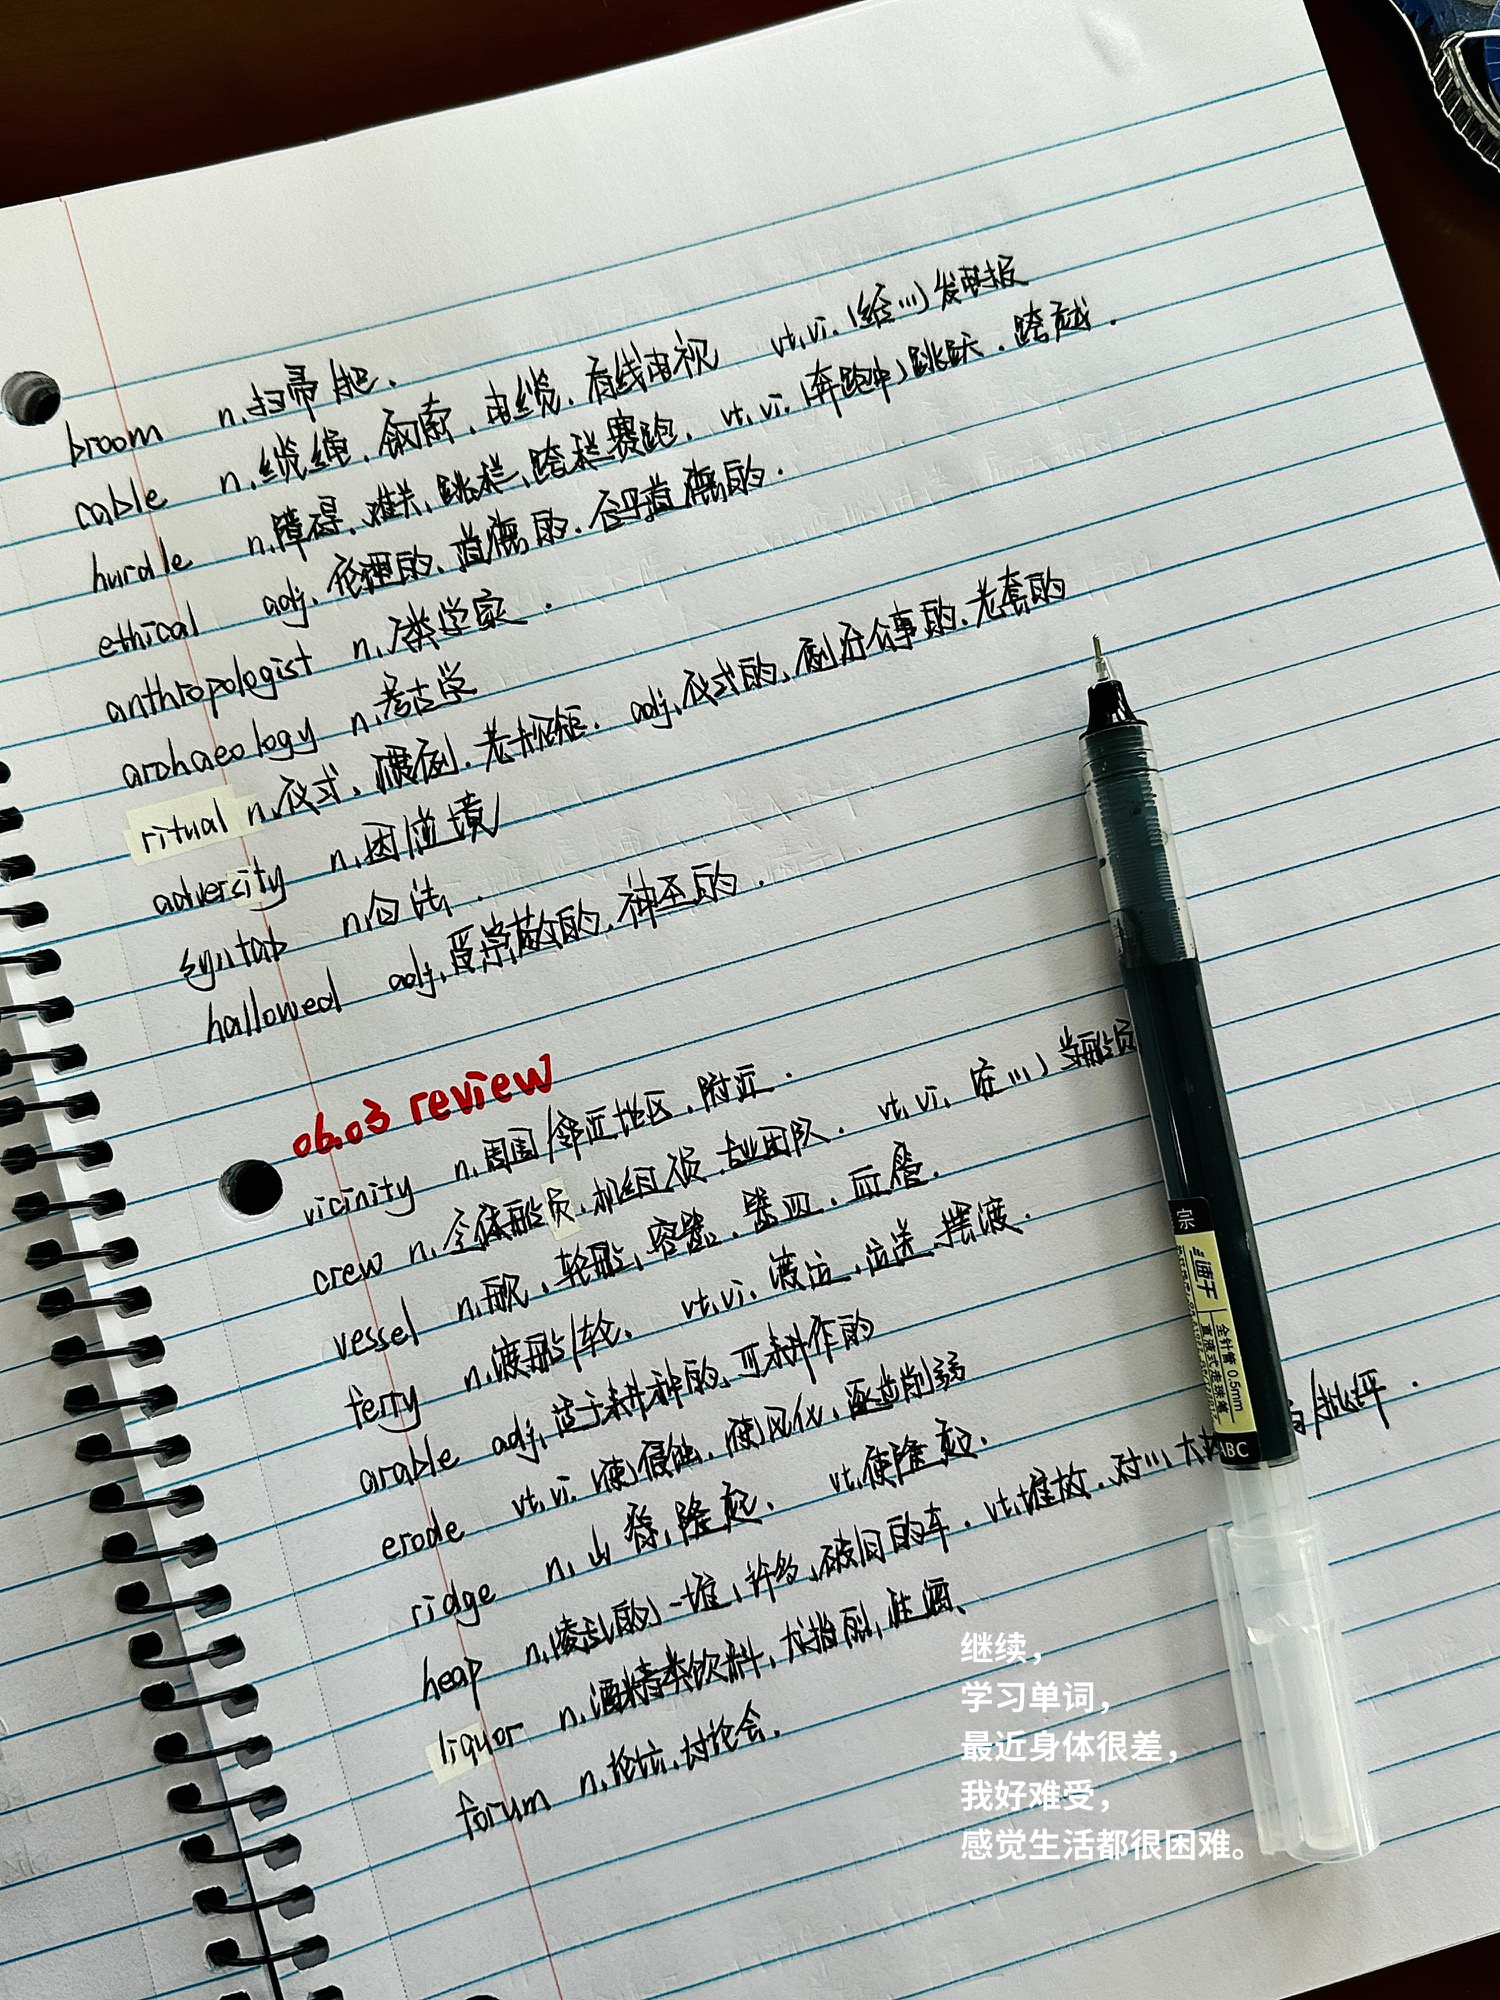 broom n.扫帚/把.
cable n.缆绳、钢索、电缆、有线电视 vt.vi.(给...)发电报
hurdle n.障碍、难关、跳栏、跨栏赛跑. vt.vi.(奔跑中)跳跃.跨越.
ethical adj.伦理的、道德的.合乎道德的.
anthropologist n.人类学家.
archaeology n.考古学
ritual n.仪式、惯例.老规矩. adj.仪式的、例行公事的、老套的
adversity n.困/逆境
n.句法.
hallowed adj.受崇敬的、神圣的.
06.03 review
vicinity n.周围/邻近地区、附近.
crew n.全体船员、机组人员.专业团队. vt.vi. 在...)当船员
vessel n.船、轮船、容器、器皿、血管.
ferry n.渡船/轮、 vt.vi.渡运、运送、摆渡.
arable adj.适于耕种的、可耕作的
erode vt.vi.(使)侵蚀、(使)风化、逐步削弱
ridge n.山脊、隆起、 vt.使隆起.
heap n.(凌乱的)一堆、许多、破旧的车. vt.堆放.对... /批评.
liquor n.酒精类饮料、尤指烈性酒、
forum n.论坛、讨论会.
宗
全针管0.5mm
直液式走珠笔
ABC
继续，
学习单词，
最近身体很差，
我好难受，
感觉生活都很困难。